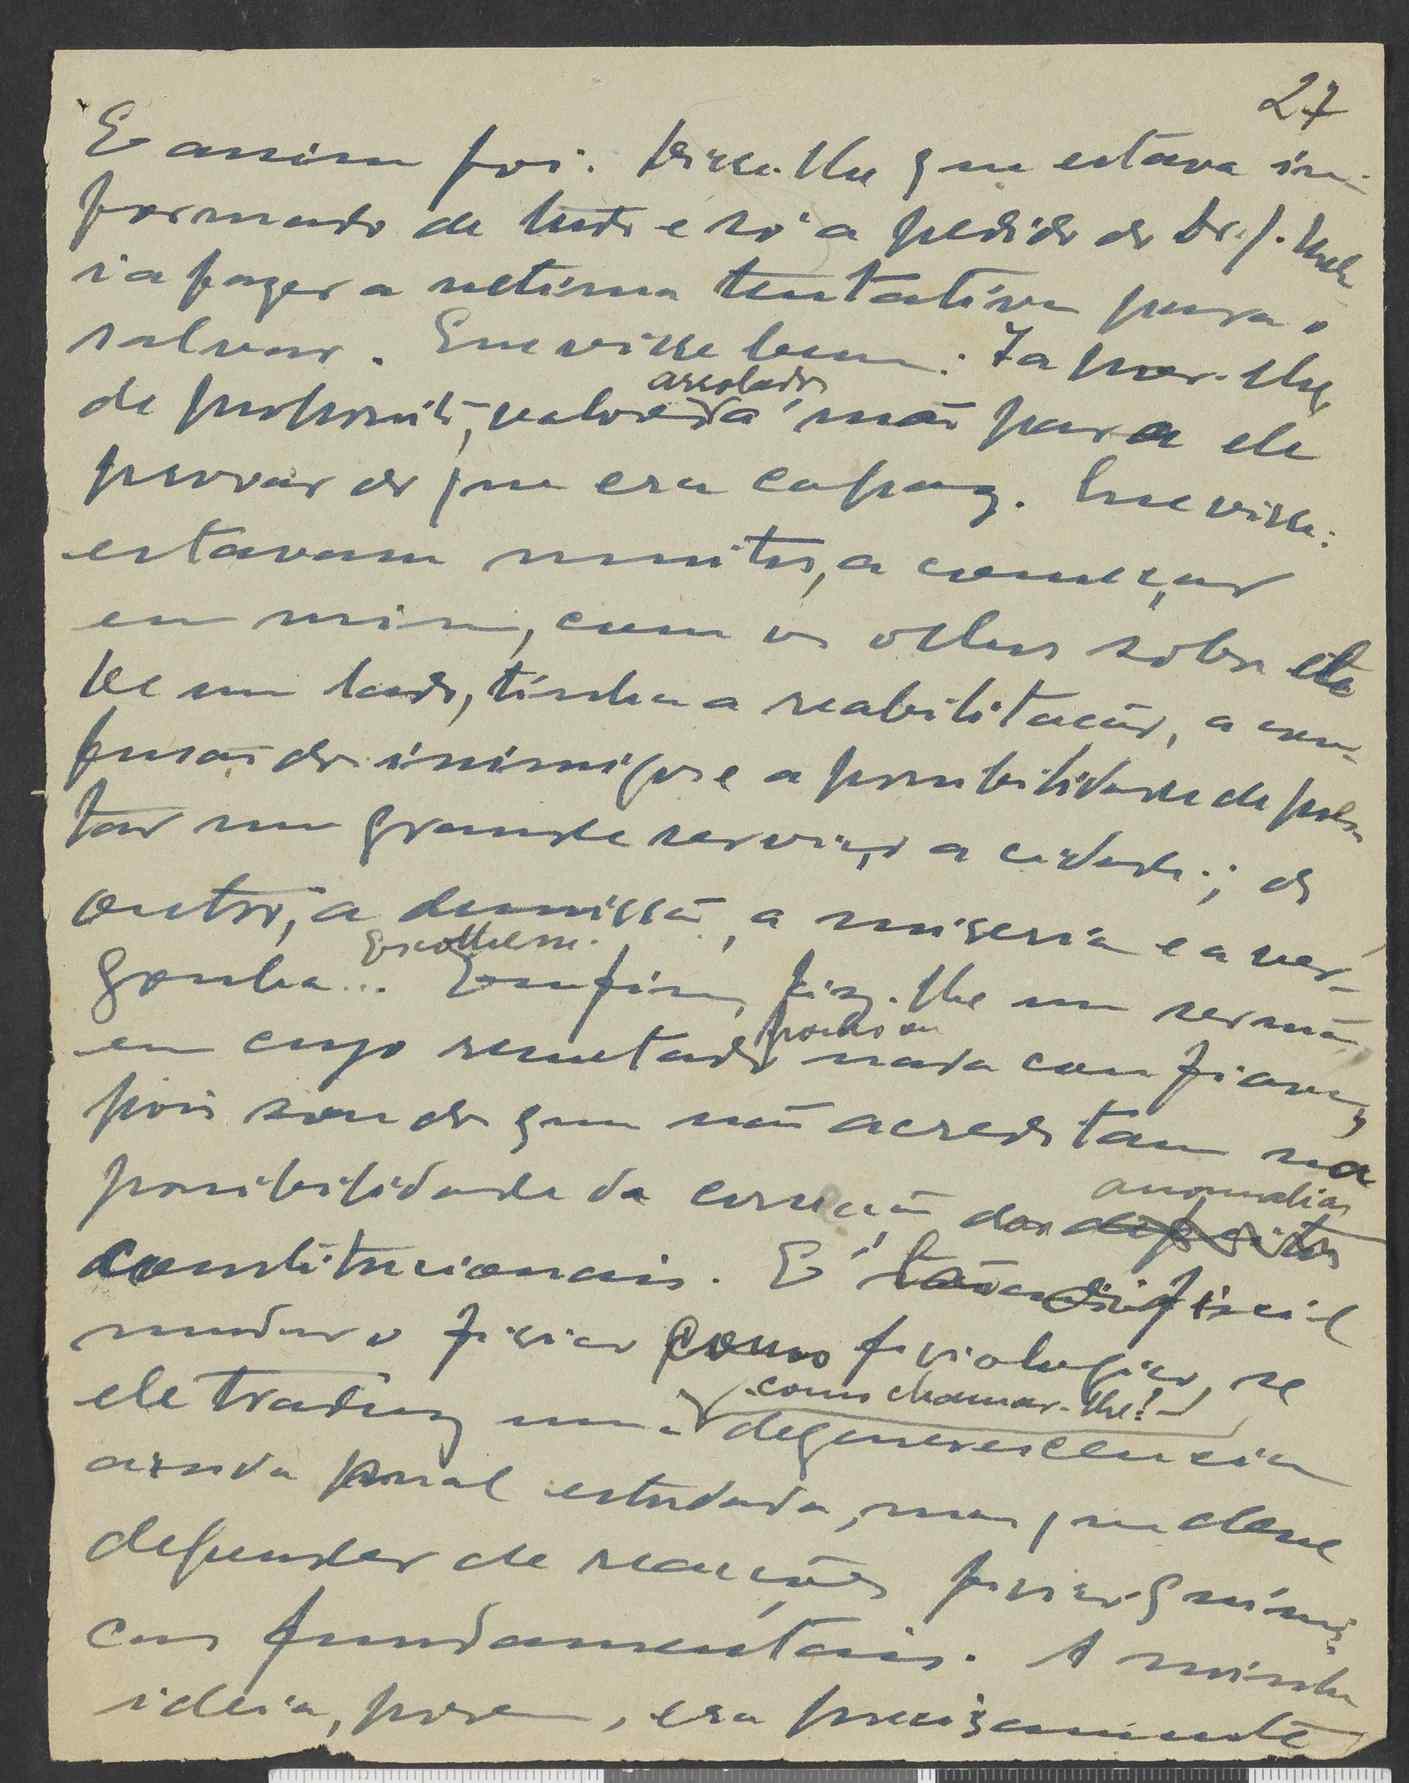 27
E assim foi. Disse-lhe que estava in-
formado de tudo e só a pedido do Dr. J.
ia fazer a ultima tentativa para o
salvar. Que visse bem: Ia por-lhe,
de proposito, valores á mão para ele
provar do que era capaz. Que visse:
estavam muitos, a começar
em mim, com os olhos sobre ele
De um lado, tinha a reabilitação, a con-
fusão dos inimigos e a possibilidade de pres-
tar um grande serviço a cidade; do
outro, a demissão, a miseria e a ver-
gonha... Escolhesse. Emfim, fiz-lhe um sermão
em cujo resultado pouco ou nada confiava,
pois sou dos que não acreditam na
possibilidade da correção das defeitos anomalias
constitucionais. É tão dificil
mudar o fisico como fisiologico, se
ele traduz uma – como chamar-lhe? – degenerescencia
ainda mal estudada, mas que deve
depender de reacções fisico-quimi-
cas fundamentais. A minha
ideia, porem, era precisamente